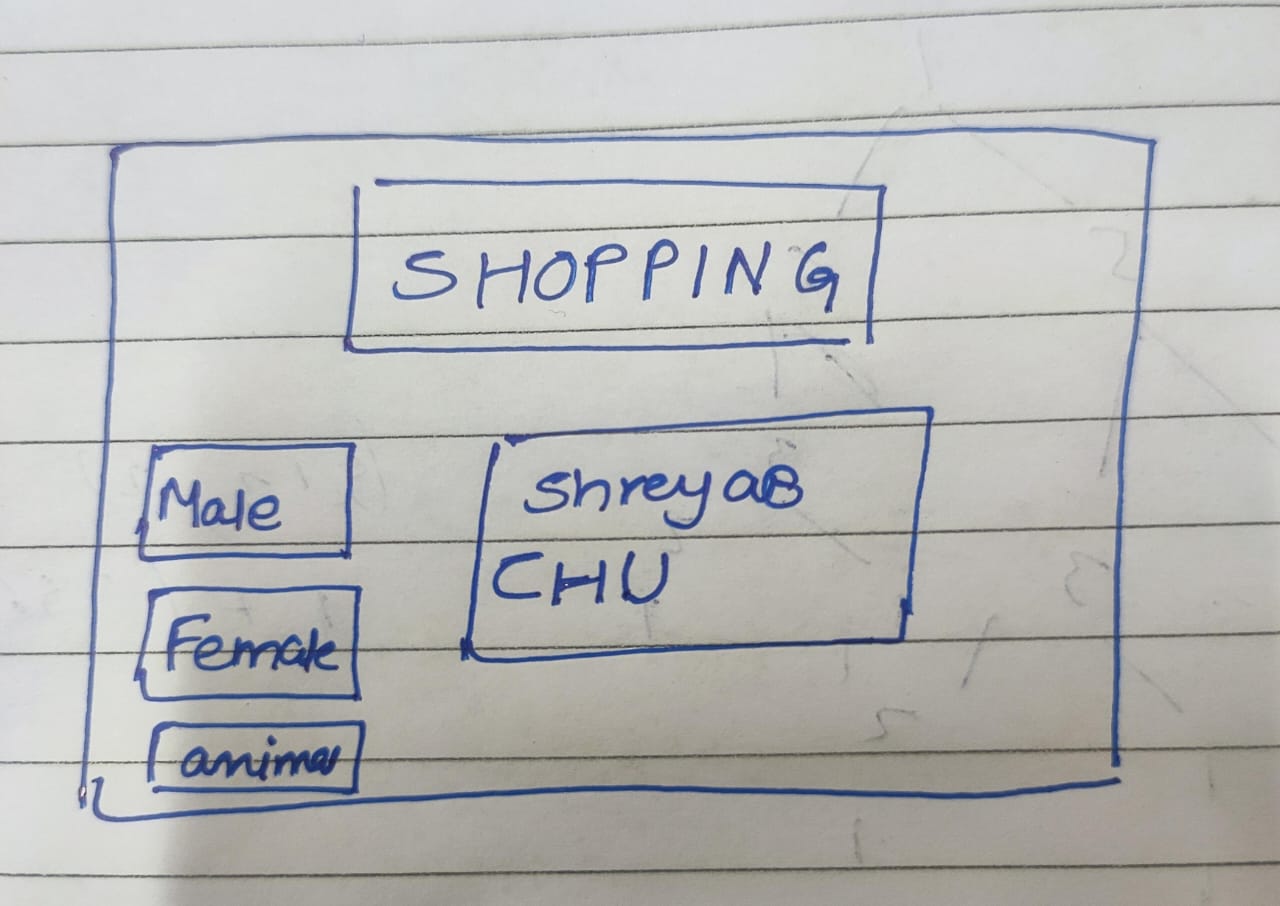 SHOPPING
Male
Female
animal
shreyaB
CHU